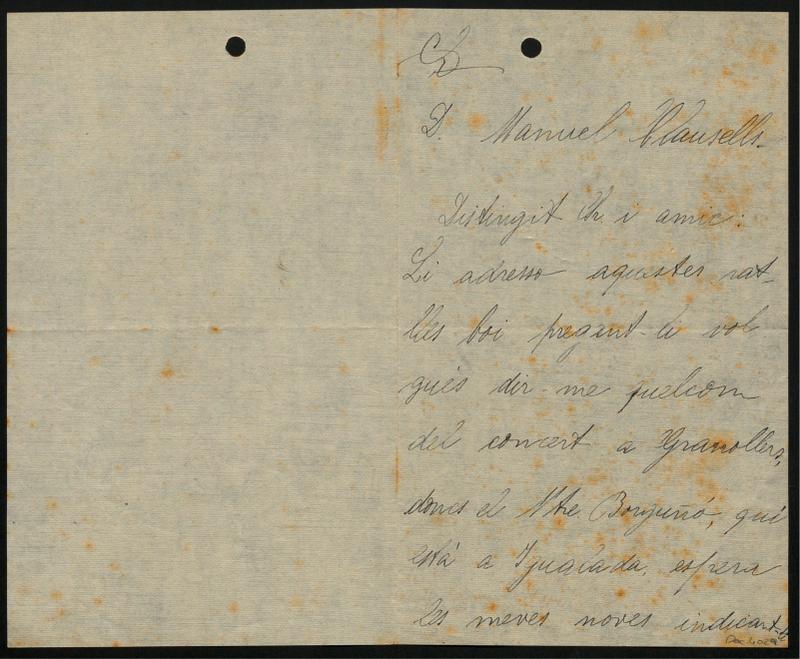 D. Manuel Clausells.
Distingit Sr. i amic:
Li adresso aquestes rat-
lles boi pregant-li vol-
gués dir-me quelcom
del concert a Granollers,
doncs el Mtre Borguñó, qui
està a Igualada, espera
les meves noves indicant-li
Doc 4029